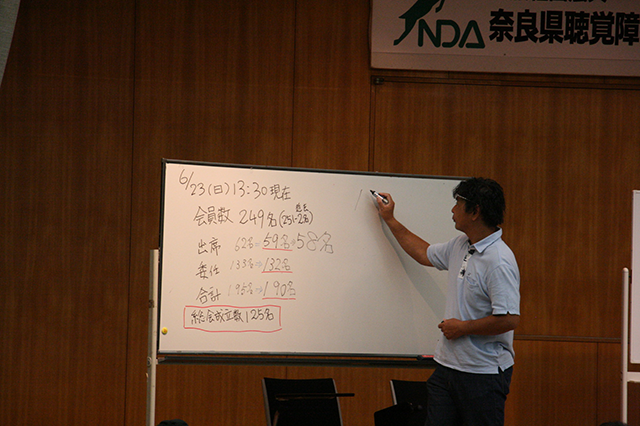 NDA 奈良県聴覚障
6/23(日) 13:30 現在
会員数 249名(251-2名)
出席 62名→59名→58名
委任 133名→132名
合計 195名→190名
総会成立数 125名